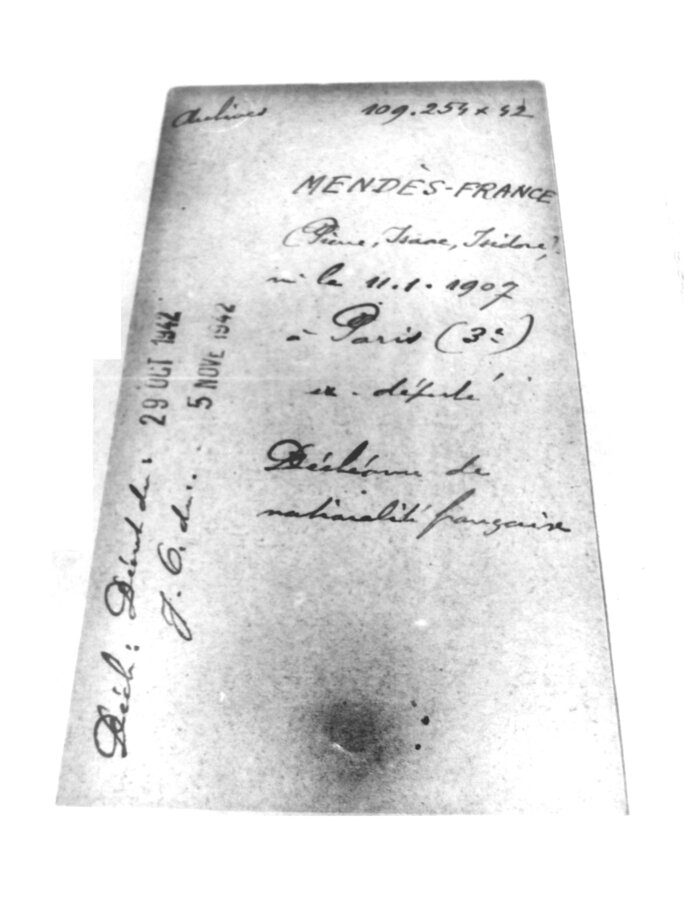 Archives 109.254 x 42
MENDÈS-FRANCE
(Pierre, Isaac, Isidore)
né le 11.1.1907
à Paris (3e)
ex-député
Déchéance de
nationalité française
Déch: Décret du: 29 OCT 1942
J.O. du: 5 NOVE 1942